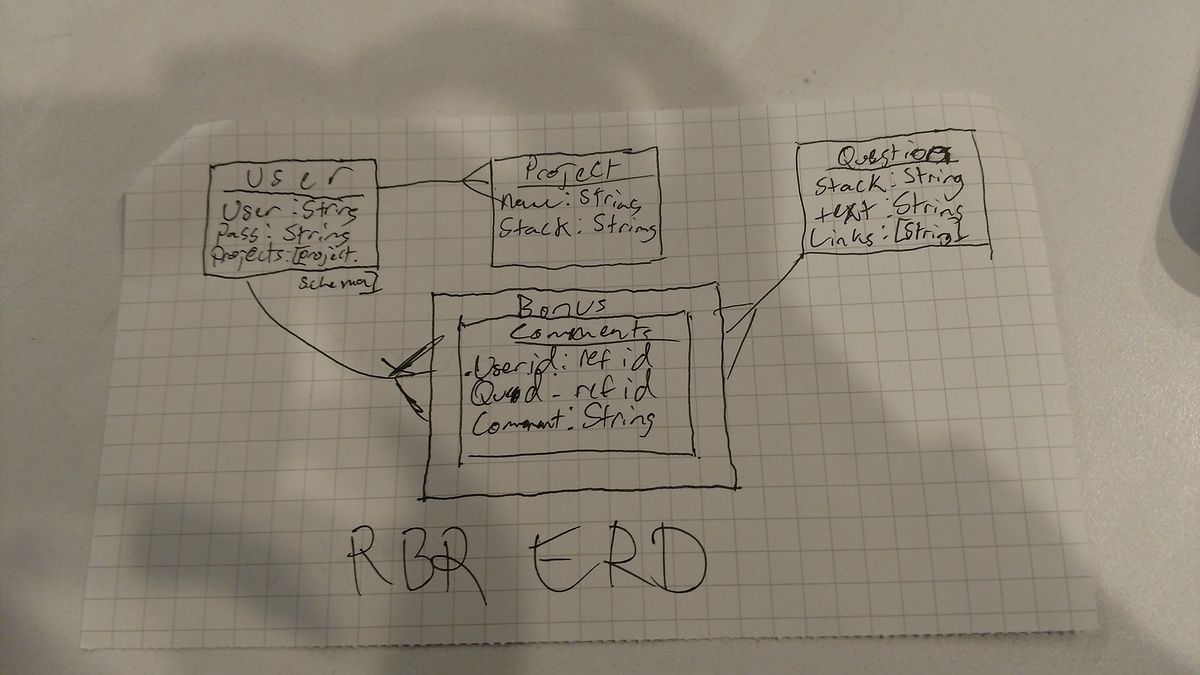 User
User: String
Pass: String
Projects: [project.
schema]
Project
name: String
Stack: String
Question
Stack: String
text: String
Links: [String]
Bonus
Comments
Userid: ref id
ref id
Comment: String
RBR ERD